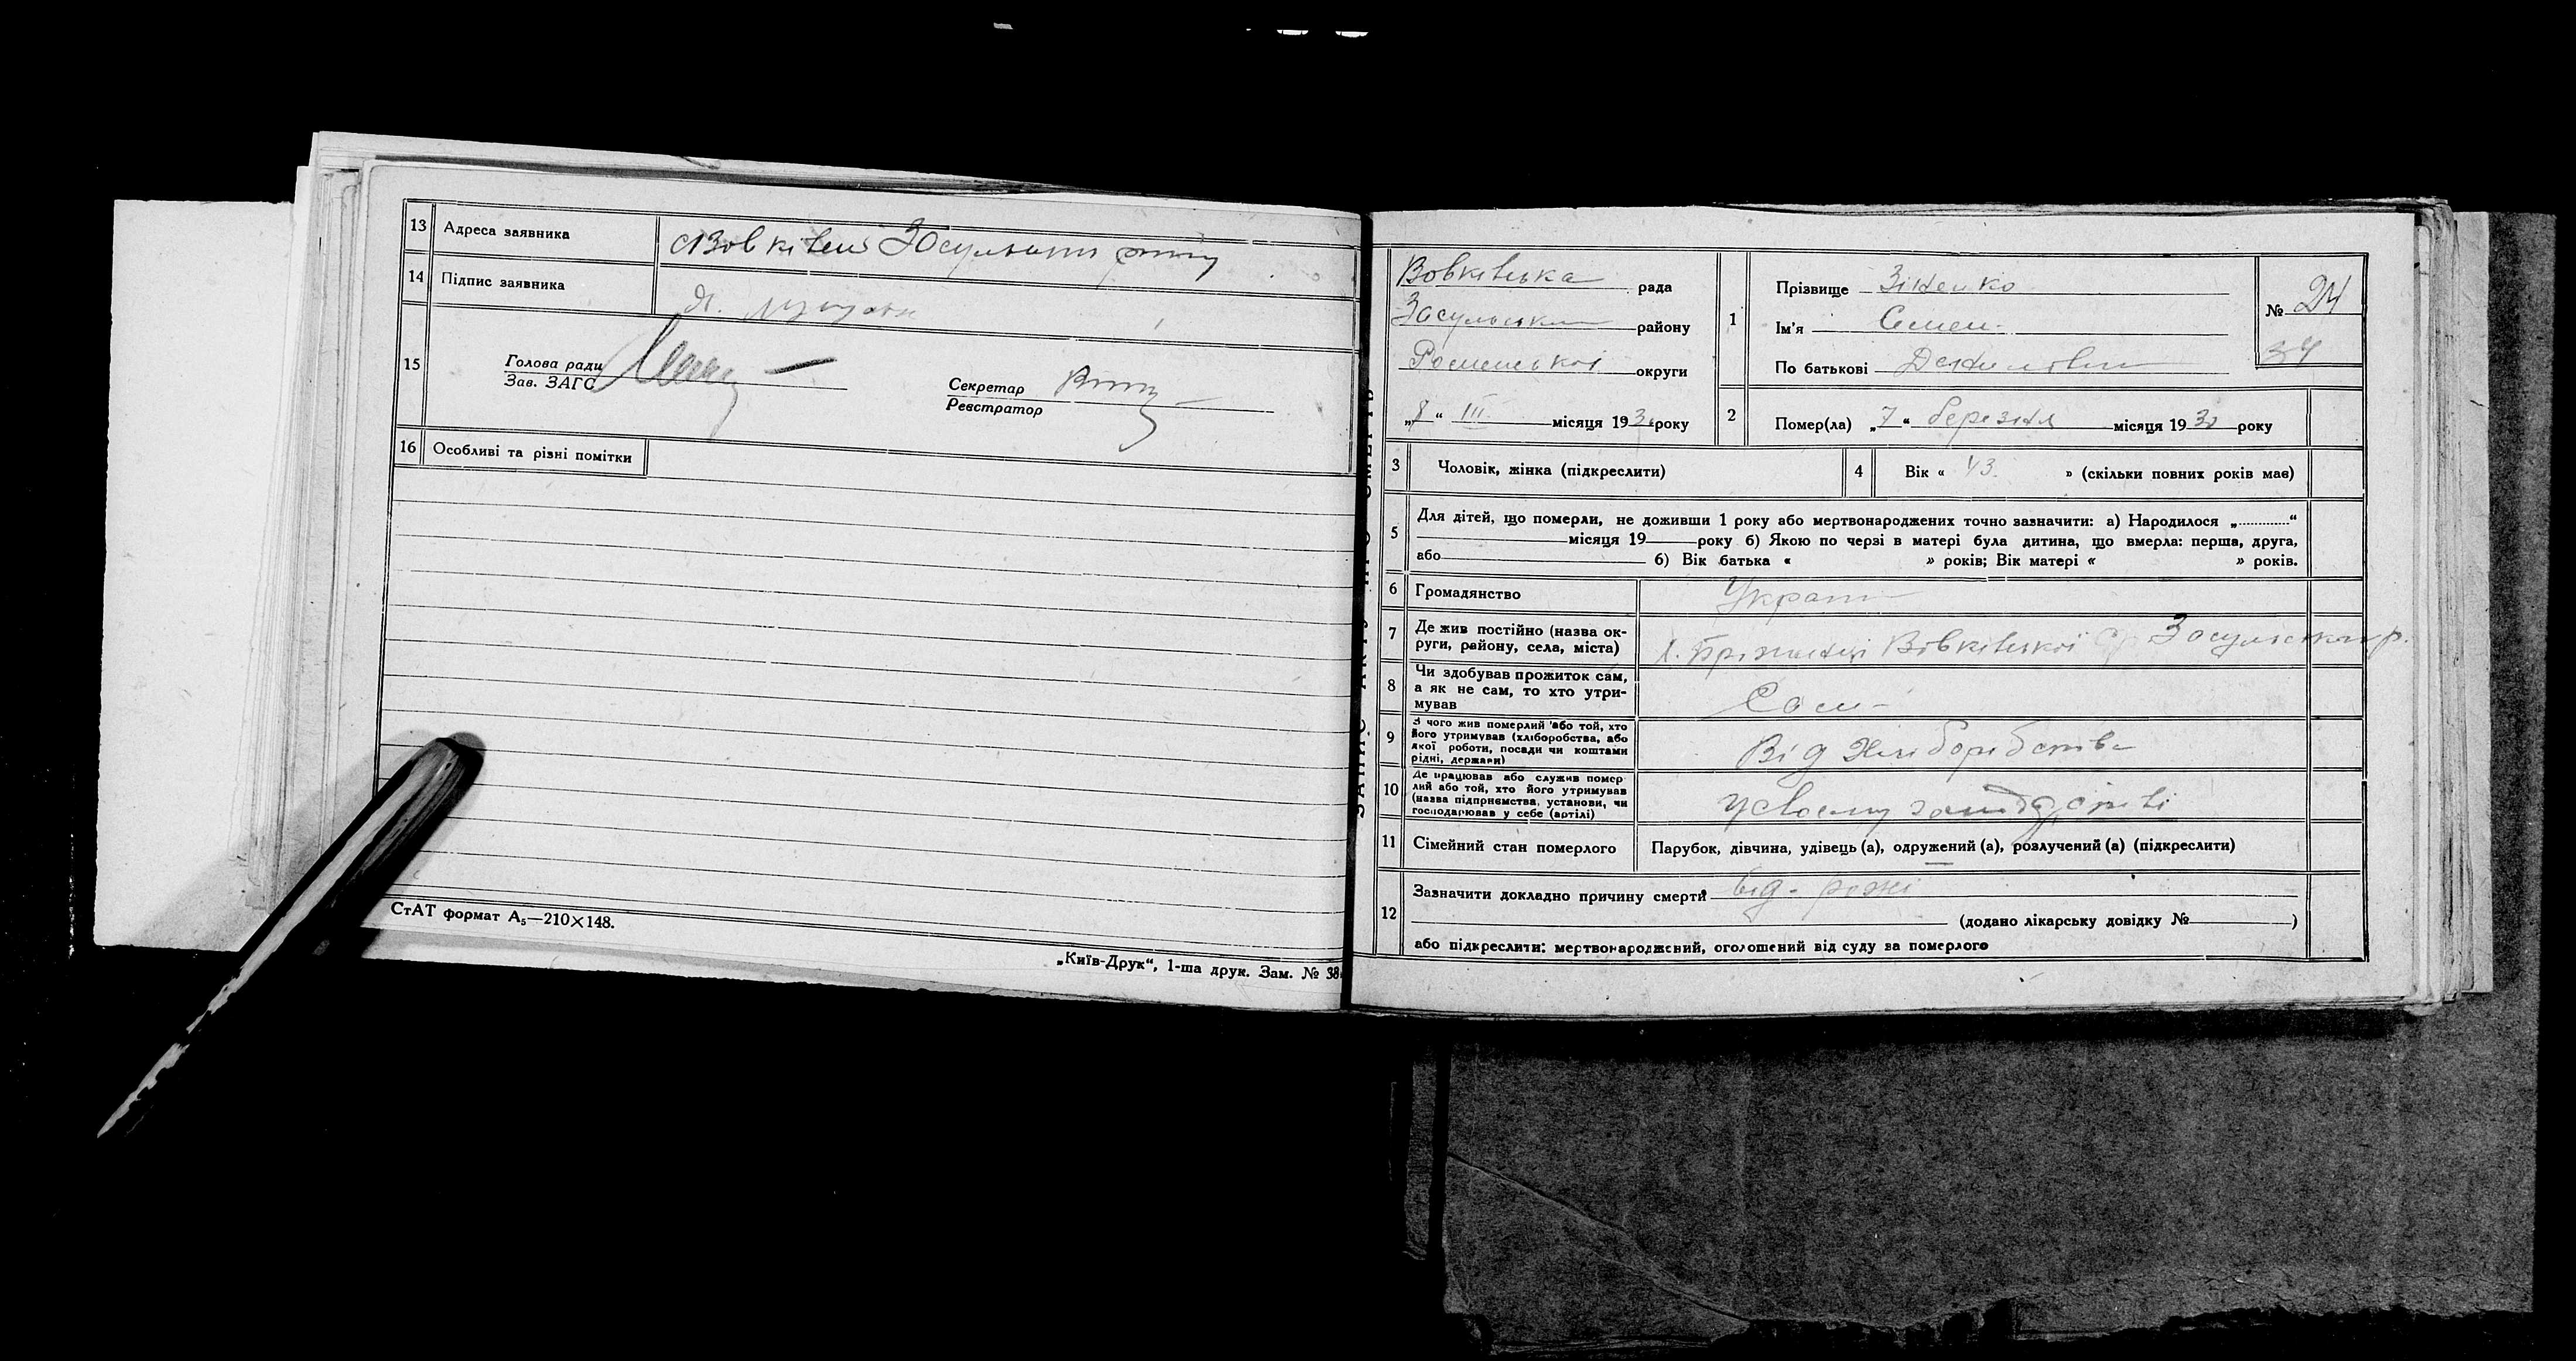 13 Адреса заявника
14 Підпис заявника
15 Голова ради
Зав. ЗАГС
Секретар
Реєстратор
16 Особливі та різні помітки
СтАТ формат А₅—210×148.
„Київ-Друк“, 1-ша друк. Зам. № 38
Вовківська рада
Засульськ району
Роменської округи
„8“ III місяця 1930 року
1 Прізвище Зіненко
Ім'я Семен
По батькові
№ 24
34
2 Помер(ла) „7“ березня місяця 1930 року
3 Чоловік, жінка (підкреслити)
4 Вік « 43 » (скільки повних років має)
5 Для дітей, що померли, не доживши 1 року або мертвонароджених точно зазначити: а) Народилося „ “
місяця 19 року б) Якою по черзі в матері була дитина, що вмерла: перша, друга,
або б) Вік батька « » років; Вік матері « » років.
6 Громадянство Украт
7 Де жив постійно (назва ок-
руги, району, села, міста) Вовківської Ср
8 Чи здобував прожиток сам,
а як не сам, то хто утри-
мував Сам
9 З чого жив померлий або той, хто
його утримував (хліборобства, або
якої роботи, посади чи коштами
рідні, держави) Від Хліборобства
10 Де працював або служив помер
лий або той, хто його утримував
(назва підприємства, установи, чи
господарював у себе (артілі) у своєму
11 Сімейний стан померлого Парубок, дівчина, удівець (а), одружений (а), розлучений (а) (підкреслити)
12 Зазначити докладно причину смерти від рожі
(додано лікарську довідку № )
або підкреслити: мертвонароджений, оголошений від суду за померлого